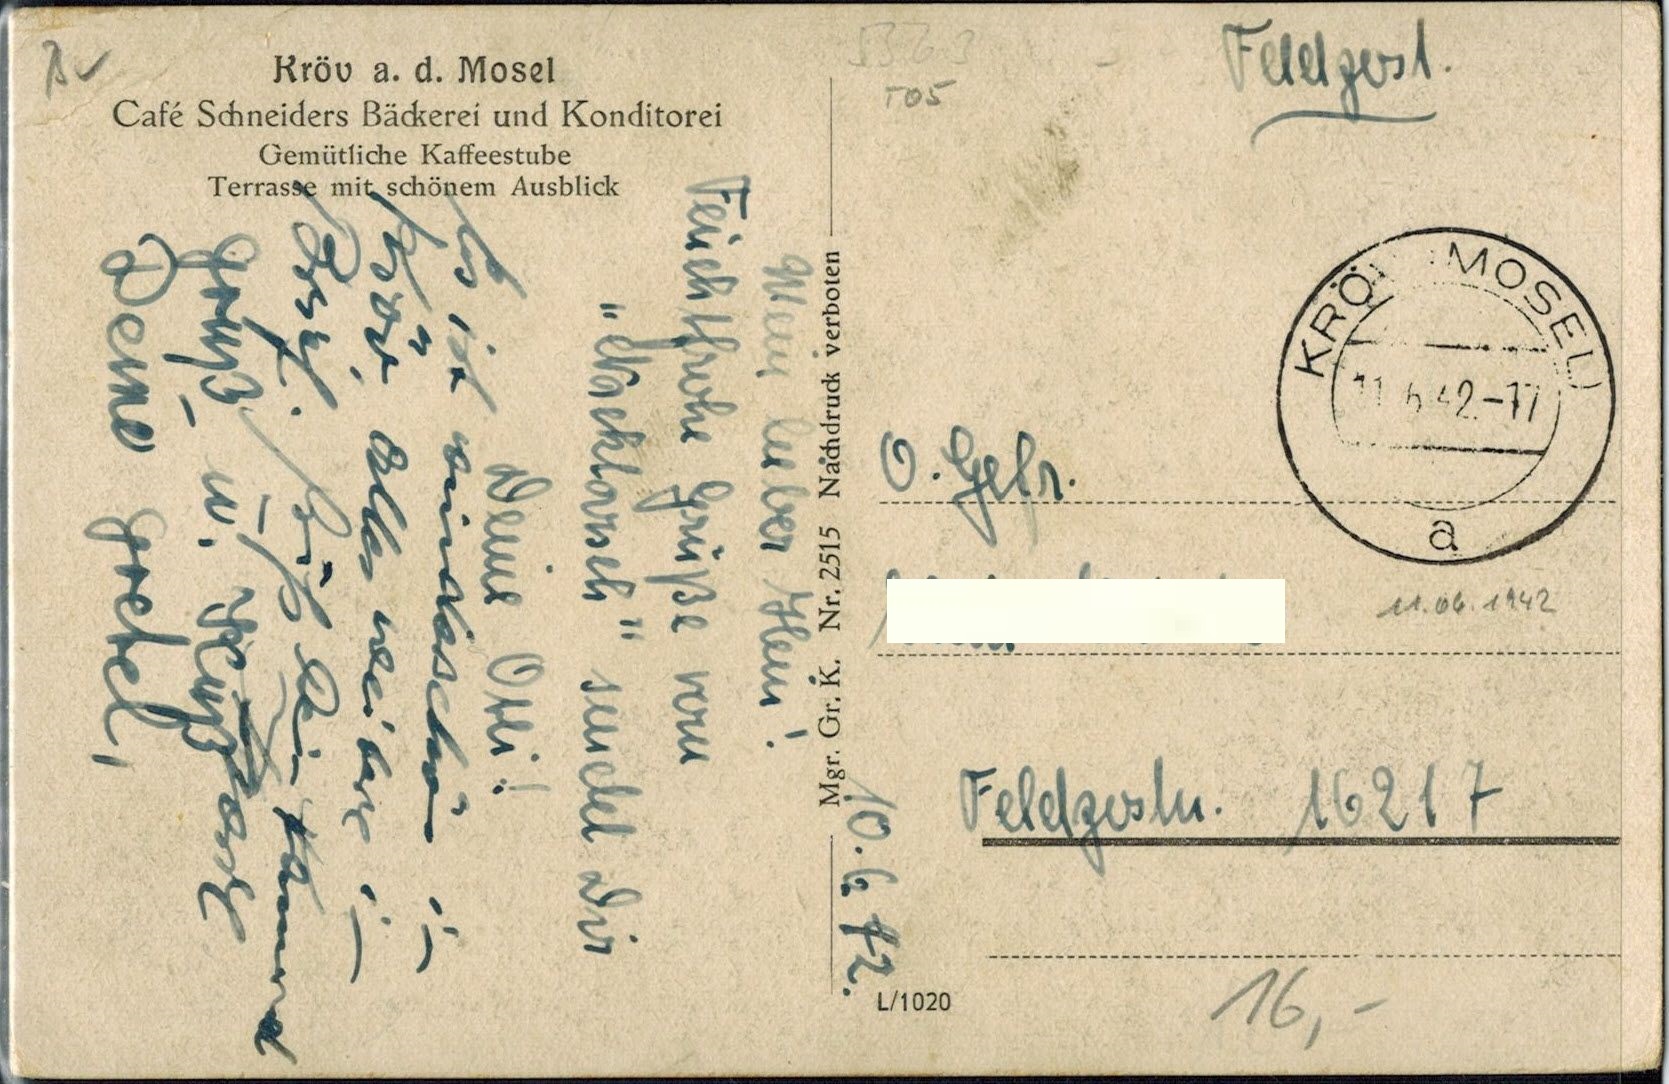 Kröv a. d. Mosel
Café Schneiders Bäckerei und Konditorei
Gemütliche Kaffeestube
Terrasse mit schönem Ausblick
10. 6. 42.
Mein lieber Heini!
Feuchtfrohe Grüße vom
"Nacktarsch" sendet Dir
Deine Otti!
Es ist wunderschön in
Kröv, alles weitere i.
Brief.
Gruß u. Kuß
Deine Gretel,
Mgr. Gr. K. Nr. 2515 Nachdruck verboten
5363
T05
Feldpost.
KRÖV (MOSEL)
11.6.42.-17
a
O. Gefr.
11.06.1942
Feldpostnr. 16217
L/1020
16,-